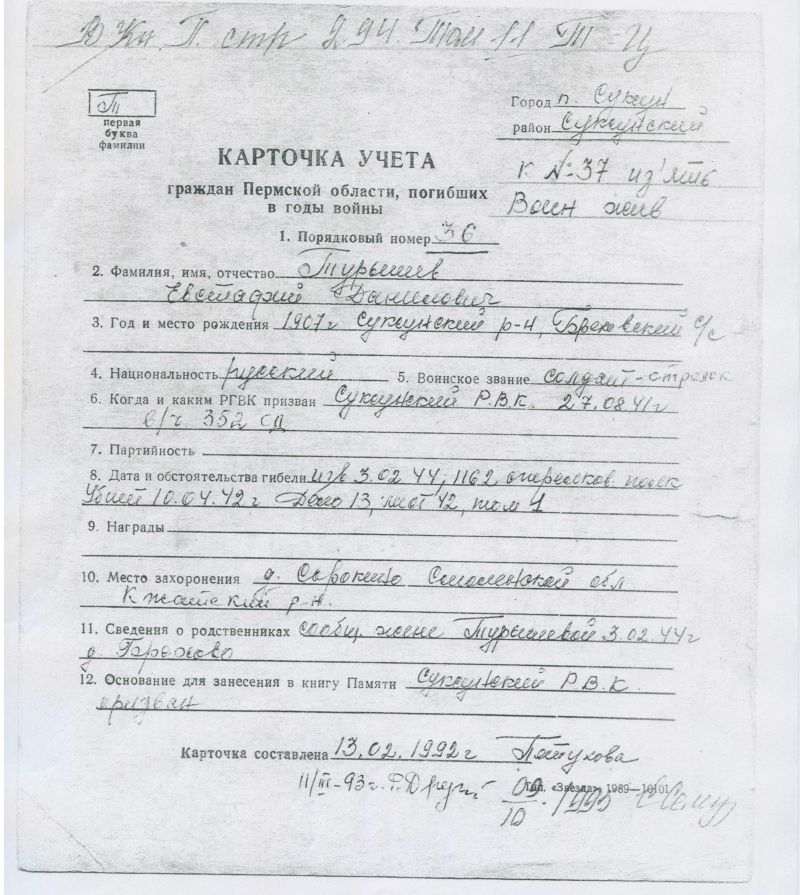 В Кн. П. стр 294. Том 11 Т-Ц
Т
первая
буква
фамилии
Город п. Суксун
район Суксунский
КАРТОЧКА УЧЕТА
граждан Пермской области, погибших
в годы войны
К №37 из'ять
Воин жив
1. Порядковый номер 36
2. Фамилия, имя, отчество Турышев
Евстафий Данилович
3. Год и место рождения 1907г Суксунский р-н, Бреховский с/с
4. Национальность русский 5. Воинское звание солдат-стрелок
6. Когда и каким РГВК призван Суксунский Р.В.К. 27.08.41г
в/ч 352 СД
7. Партийность
8. Дата и обстоятельства гибели изв 3.02.44; 1162 стрелков. полк
Убит 10.04.42г Дело 13, лист 42, том 1
9. Награды
10. Место захоронения д. Сорокино Смоленской обл
р-н.
11. Сведения о родственниках сообщ. жене Турышевой 3.02.44г
д. Брехово
12. Основание для занесения в книгу Памяти Суксунский Р.В.К.
призван
Карточка составлена 13.02.1992г
11/III-93г.
Тип. «Звезда» 1989—10101